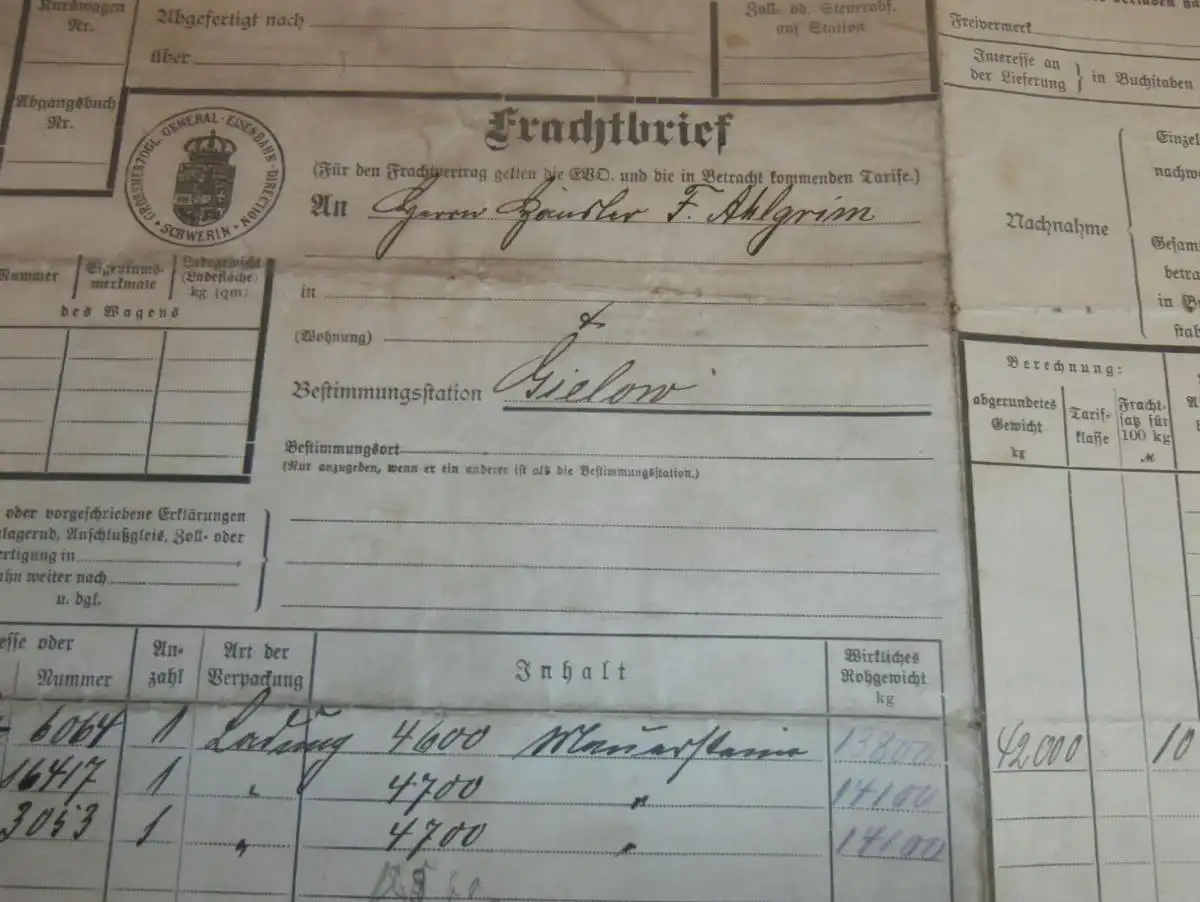 Kurswagen
Nr.
Abgefertigt nach
über
Zoll- od. Steuerabf.
auf Station
Freivermerk
Interesse an
der Lieferung } in Buchstaben
Abgangsbuch
Nr.
GROSHERZOGL. GENERAL-EISENBAHN-DIRECTION
SCHWERIN
Frachtbrief
(Für den Frachtvertrag gelten die EVO. und die in Betracht kommenden Tarife.)
An Herrn Häusler F. Ahlgrim
in
(Wohnung)
Bestimmungsstation Gielow
Bestimmungsort
(Nur anzugeben, wenn er ein anderer ist als die Bestimmungsstation.)
Nummer
Eigentums-
merkmale
Ladegewicht
(Ladefläche)
kg (qm)
des Wagens
oder vorgeschriebene Erklärungen
lagernd, Anschlußgleis, Zoll- oder
ertigung in
ahn weiter nach
u. dgl.
Nachnahme
Einzel
nachw
Gesam
betra
in B
stab
Berechnung:
abgerundetes
Gewicht
kg
Tarif-
klasse
Fracht-
satz für
100 kg
M
esse oder
Nummer
An-
zahl
Art der
Verpackung
Inhalt
Wirkliches
Rohgewicht
kg
6064 1 Ladung 4600 Mauersteine 13800 42000 10
16417 1 " 4700 " 14100
3053 1 " 4700 " 14100